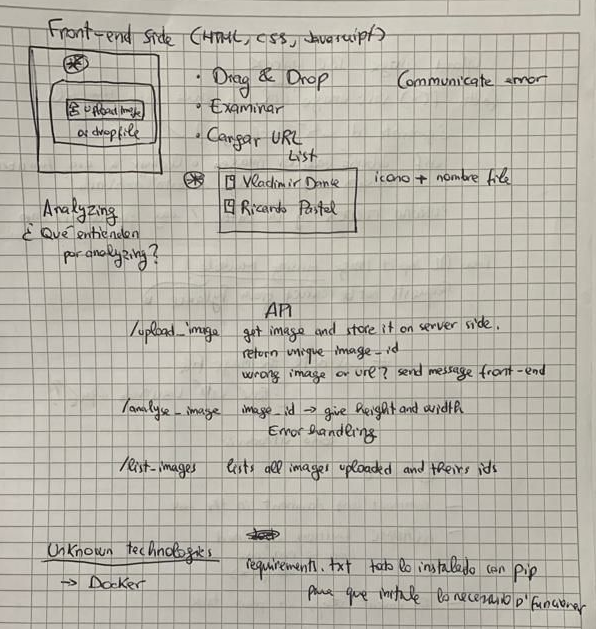 Front-end side (HTML, CSS, Javascript)
upload image
or drop file
• Drag & Drop
Communicate error
• Examinar
• Cargar URL
List
Vladimir
Ricardo
icono + nombre file
Analyzing
¿ Qué entienden
por analyzing?
API
/upload_image get image and store it on server side.
return unique image_id
wrong image or url? send message front-end
/analyse_image image_id → give height and width
Error handling
/list_images lists all images uploaded and theirs ids
Unknown technologies
→ Docker
requirements.txt todo lo instalado con pip
para que instale lo necesario p' funcionar